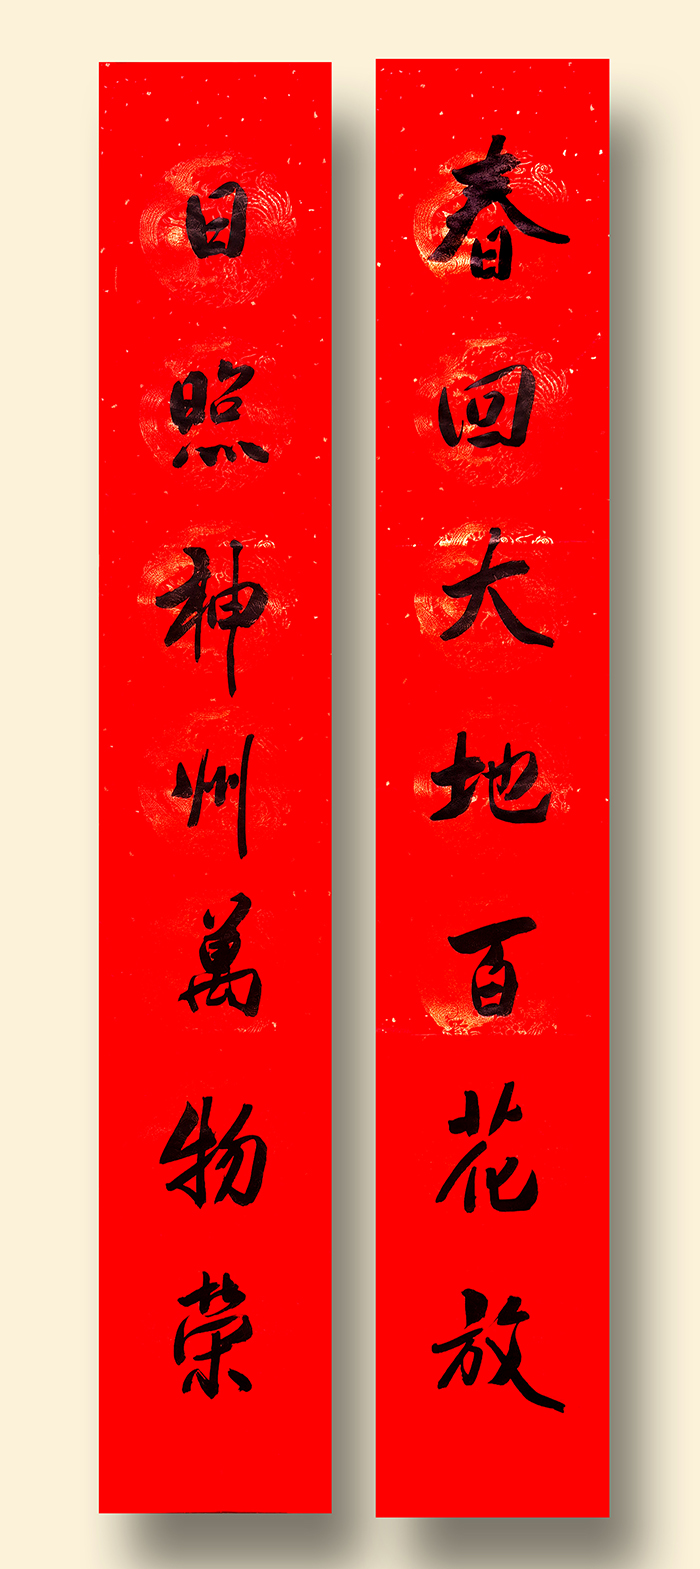 春回大地百花放
日照神州萬物荣